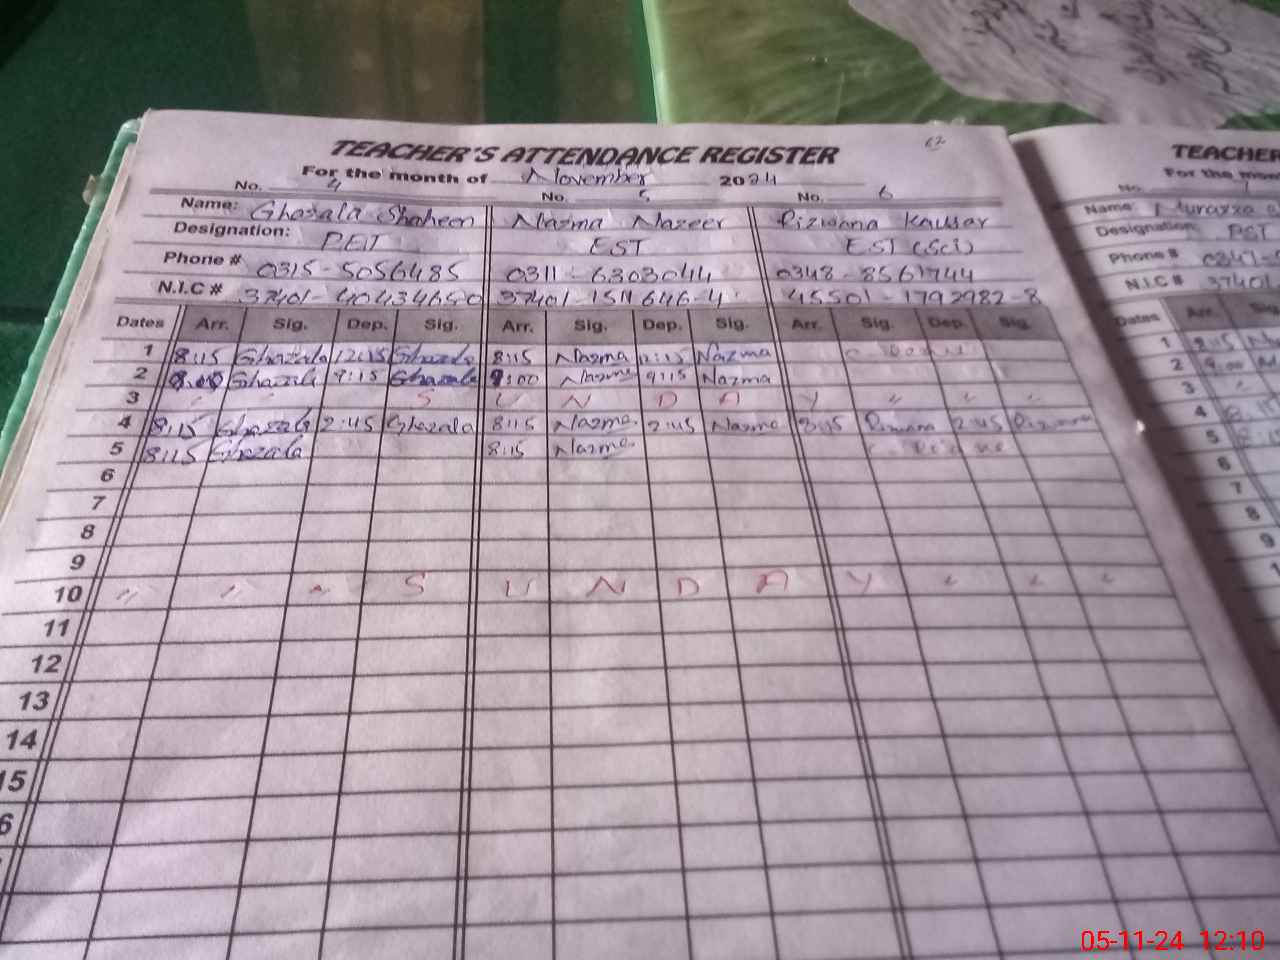 TEACHER'S ATTENDANCE REGISTER
For the month of November 2024
No. 4 No. 5 No. 6
Name: Ghazala Shaheen Nazma Nazeer Rizwana Kausar
Designation: EST EST (Sci)
Phone # 0315-5056485 0311-6303044 0348-8561744
N.I.C # 37401-4043465-0 37401-1511646-4 45501-1792982-8
Dates Arr. Sig. Dep. Sig. Arr. Sig. Dep. Sig. Arr. Sig. Dep. Sig.
1 8:15 Ghazala 12:15 Ghazala 8:15 Nazma 12:15 Nazma
2 Ghazala 9:15 Ghazala 9:00 Nazma 9:15 Nazma
3 " " S U N D A Y " " "
4 8:15 Ghazala 2:45 Ghazala 8:15 Nazma 2:45 Nazma 8:15 Rizwana 2:45 Rizwana
5 8:15 Ghazala 8:15 Nazma
6
7
8
9
10 " " " S U N D A Y " " "
11
12
13
14
15
6
TEACHER
For the mon
No. 1
Name: Murtaza
Designation: PST
Phone # 0347-5
N.I.C # 37401
Dates Arr. Sig
1 8:15
2 9:00
3 "
4 8:15
5
6
7
8
9
1
05-11-24 12:10